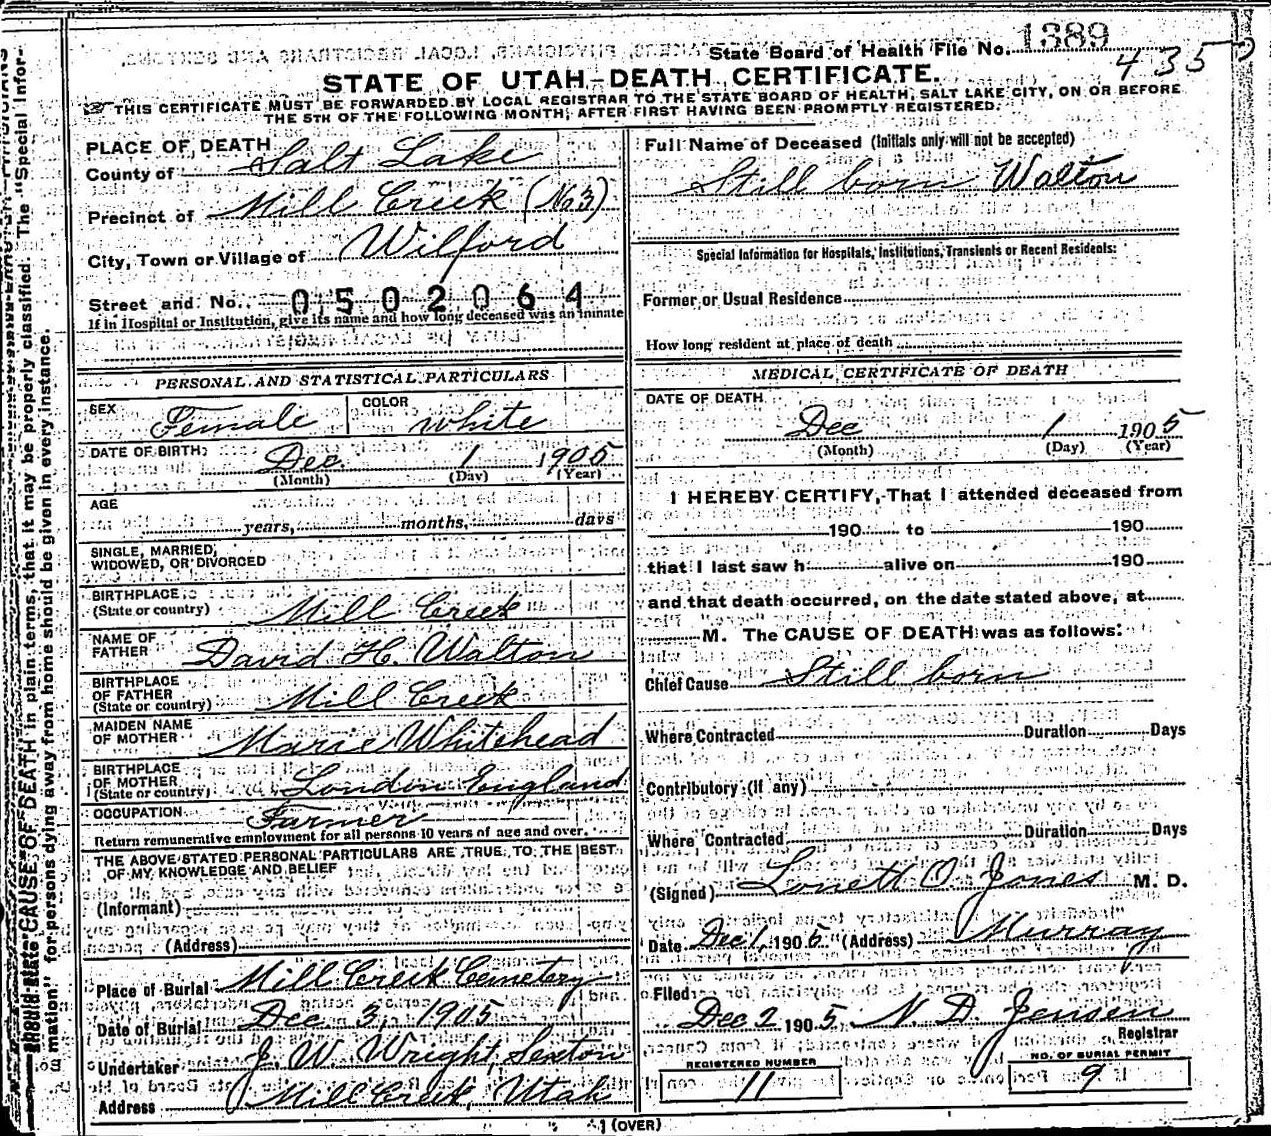 State Board of Health File No. 1389
435
STATE OF UTAH—DEATH CERTIFICATE.
THIS CERTIFICATE MUST BE FORWARDED BY LOCAL REGISTRAR TO THE STATE BOARD OF HEALTH, SALT LAKE CITY, ON OR BEFORE
THE 5TH OF THE FOLLOWING MONTH, AFTER FIRST HAVING BEEN PROMPTLY REGISTERED.
PLACE OF DEATH
County of Salt Lake
Precinct of Mill Creek (No 3)
City, Town or Village of Wilford
Street and No. 0502064
If in Hospital or Institution, give its name and how long deceased was an inmate
PERSONAL AND STATISTICAL PARTICULARS
SEX Female COLOR White
DATE OF BIRTH Dec. 1 1905
(Month) (Day) (Year)
AGE
years, months, days
SINGLE, MARRIED,
WIDOWED, OR DIVORCED
BIRTHPLACE
(State or country) Mill Creek
NAME OF
FATHER David H. Walton
BIRTHPLACE
OF FATHER
(State or country) Mill Creek
MAIDEN NAME
OF MOTHER Marie Whitehead
BIRTHPLACE
OF MOTHER
(State or country) London England
OCCUPATION Farmer
Return remunerative employment for all persons 10 years of age and over.
THE ABOVE STATED PERSONAL PARTICULARS ARE TRUE TO THE BEST
OF MY KNOWLEDGE AND BELIEF
(Informant)
(Address)
Place of Burial Mill Creek Cemetery
Date of Burial Dec 3, 1905
Undertaker J. W. Wright, Sexton
Address Mill Creek, Utah
Full Name of Deceased (Initials only will not be accepted)
Still born Walton
Special Information for Hospitals, Institutions, Transients or Recent Residents:
Former or Usual Residence
How long resident at place of death
MEDICAL CERTIFICATE OF DEATH
DATE OF DEATH
Dec 1 1905
(Month) (Day) (Year)
I HEREBY CERTIFY, That I attended deceased from
190 to 190
that I last saw h alive on 190
and that death occurred, on the date stated above, at
M. The CAUSE OF DEATH was as follows:
Chief Cause Still born
Where Contracted Duration Days
Contributory (if any)
Where Contracted Duration Days
(Signed) O. Jones M. D.
Date Dec 1, 1905 (Address) Murray
Filed
Dec 2 1905, N. D. Jensen
Registrar
REGISTERED NUMBER
11
NO. OF BURIAL PERMIT
9
(OVER)
should state CAUSE OF DEATH in plain terms, that it may be properly classified. The "Special Infor-
mation" for persons dying away from home should be given in every instance.